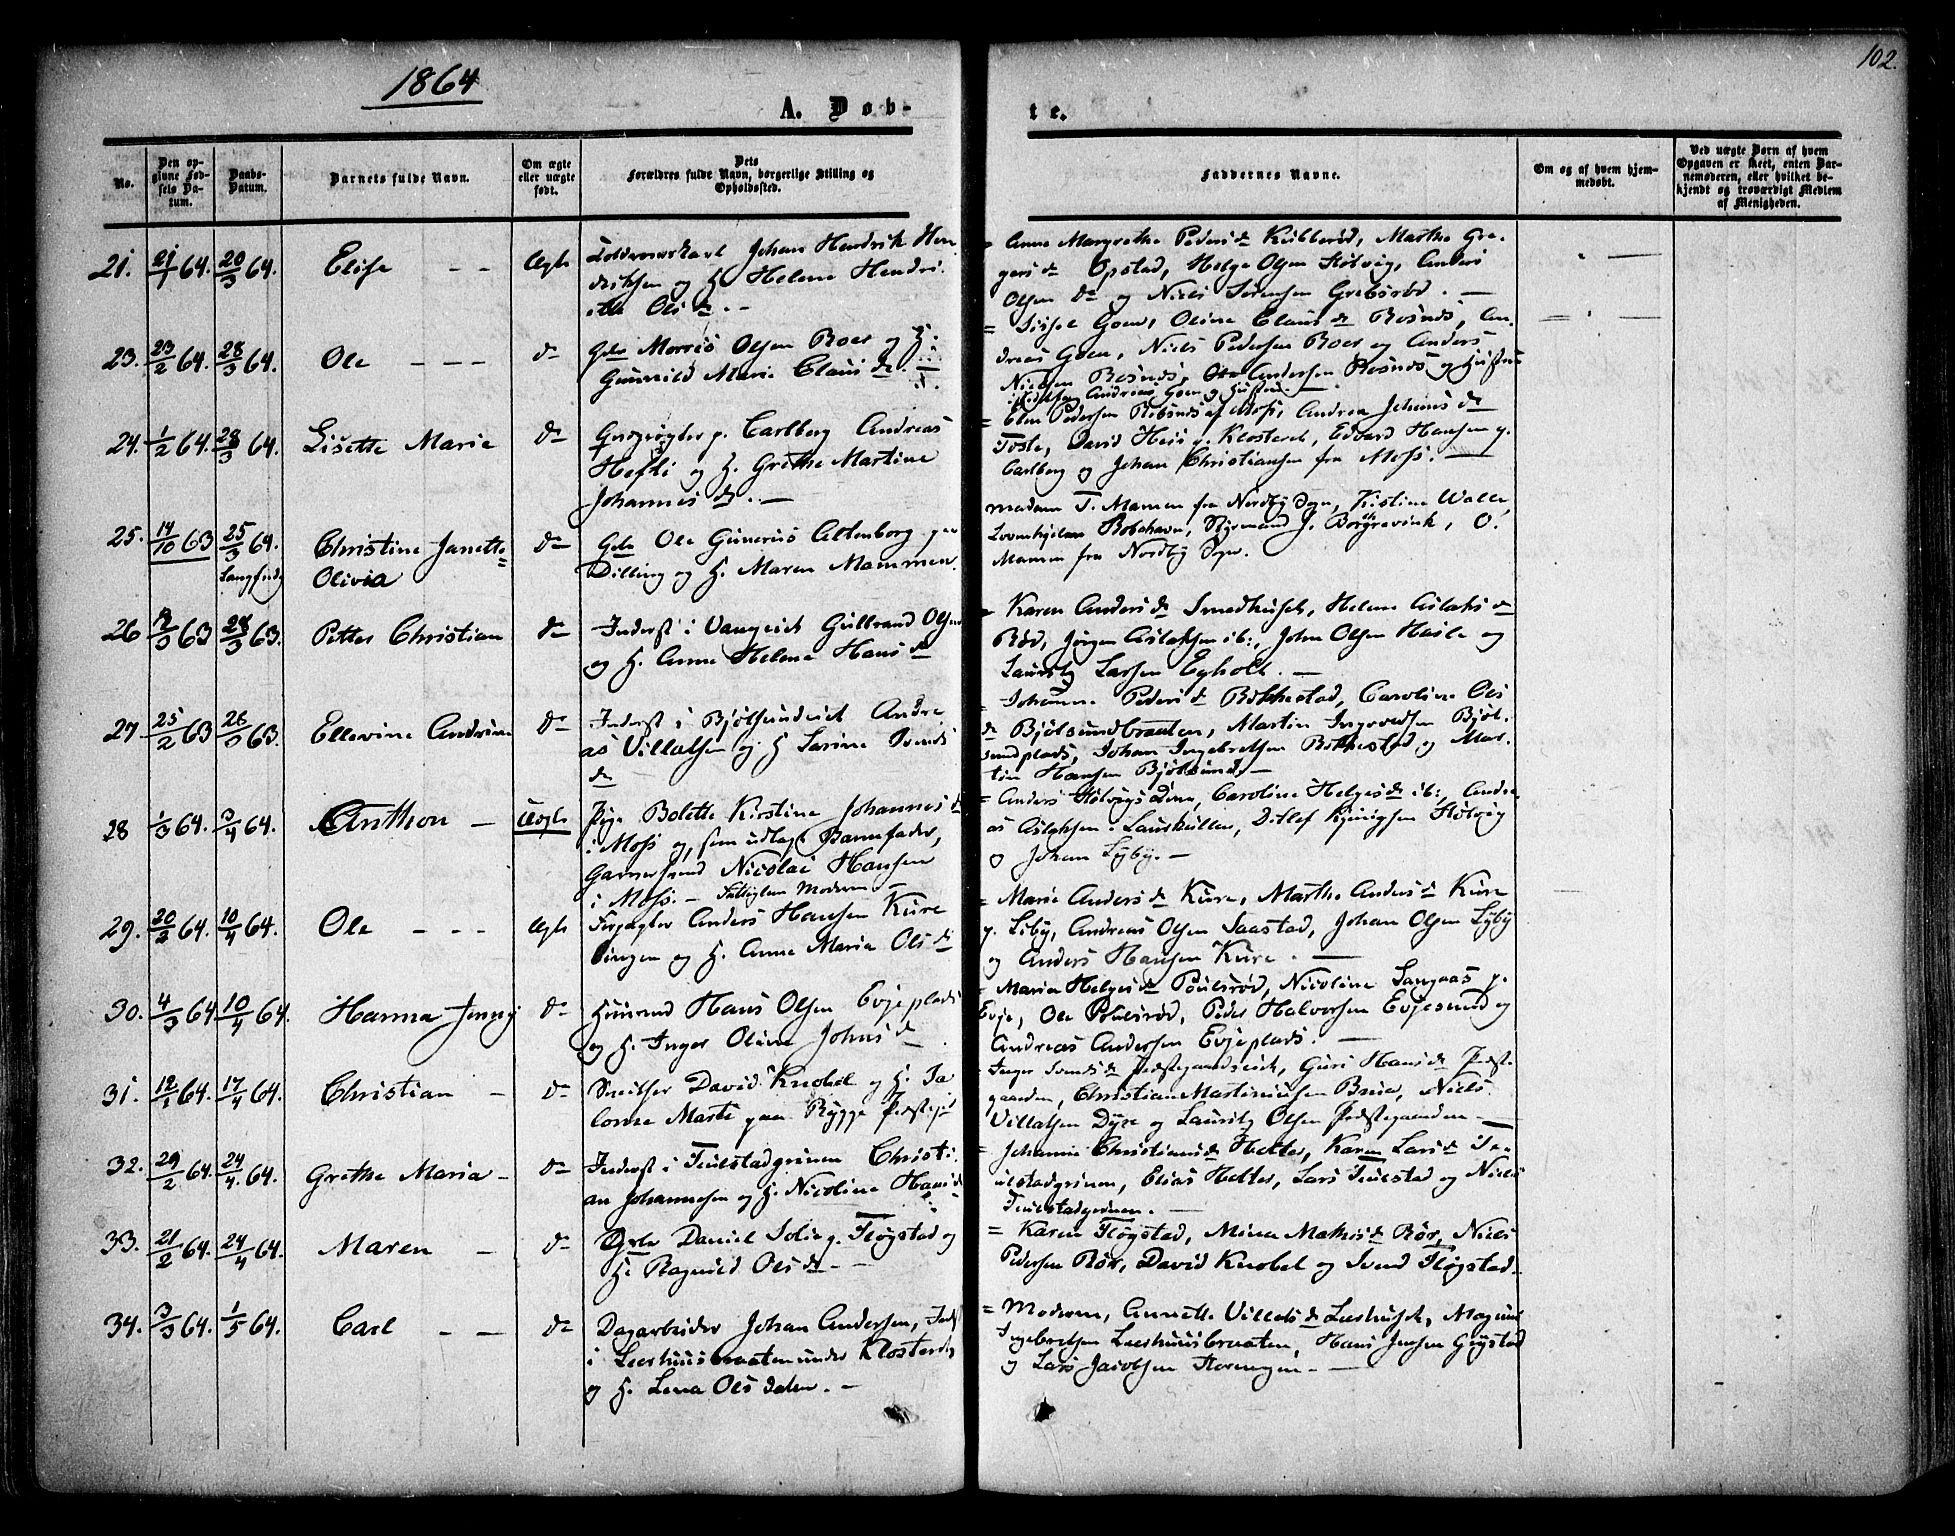 1864
102.
A. Døb-
te.
No.
Den op-
givne Fød-
sels Da-
tum.
Daabs-
Datum.
Barnets fulde Navn.
Om ægte
eller uægte
født.
Dets
Forældres fulde Navn, borgerlige Stilling og
Opholdssted.
Faddernes Navne.
Om og af hvem hjem-
medøbt.
Ved uægte Børn af hvem
Opgaven er skeet, enten Bar-
nemoderen, eller hvilket be-
kjendt og troværdigt Medlem
af Menigheden.
21. 21/1 64. 20/3 64. Elise - - Ægte
Johan Hendrik Hen
driksen og H. Helene Hendri-
Ols d. -
= Anne Margrethe Peders d Kubberød, Marthe Gre-
gers d Opstad, Helge Olsen Støtvig, Anders
Olsen do og Niels Sørensen Grebsrød. -
23. 23/2 64. 28/3 64. Ole - - - do
Gdr Morris Olsen Roer og H.
Gunnild Marie Claus d.
= Sissel Goen, Oline Claus d Rosnes, An-
dreas Goen, Niels Pedersen Roer og Anders
Nielsen Rosnes, Andersen Rosnes og Hustru
Andreas Goen og Hustru.
24. 1/2 64. 28/3 64. Lisette Marie do
p. Carlberg Andreas
Hefli og H. Grethe Martine
Johannes d. -
= Elen Pedersen af Moss, Andrea Johannes d
Tosle, David Heis p. Klosteret, Edvard Hansen p.
Carlberg og Johan Christiansen fra Moss. -
25. 14/10 63 25/3 64. Christine Janette
Langfredg
Olivia do
Gdr Ole Gunerius Altenborg paa
Dilling og H. Maren Mammen.
Madam T. Mammen fra Nordby Sogn, Kistine Walle,
Robshavn, Styrmand J. Borgrevink, O.
Mammen fra Nordby Sogn.
26 2/3 63 28/3 63. Petter Christian do
Inderst i Vangeid Gulbrand Olsen
og H. Anne Helene Hans d
= Karen Anders d Smedhuset, Helene Aslaks d
Rød, Jørgen Aslaksen ib:, John Olsen Hasle og
Laurits Larsen Egholt. -
27. 25/2 63 28/3 63. Ellevine Andrine do
Inderst i Bjølsundeid Andre
as Villatsen og H Sarine Svends
d
- Johanne Peders d Rokkestad, Caroline Ols
d Bjølsundbraaten, Martin Ingvordsen Bjøl-
sundplads, Johan Ingebretsen Rokkestad og Mar-
tin Hansen Bjølsund. -
28 1/3 64. 3/4 64. Anthon - Uægte
Pige Bolette Kirstine Johannes d
i Moss og, som udlagt Barnefader,
Garversvend Nicolai Hansen
i Moss. - Moderen -
= Anders Støtvigs Dine, Caroline Helges d ib:, Andre
as Aslaksen Laurkullen, Ditlef Støtvig
og Johan Lyby. -
29. 20/2 64. 10/4 64. Ole - - - Ægte
Forpagter Anders Hansen Kure
og H. Anne Maria Ols d
= Marie Anders d Kure, Marthe Anders d Kure
p. Liby, Andreas Olsen Saastad, Johan Olsen Lyby
og Anders Hansen Kure. -
30. 4/3 64 10/4 64. Hanna Jenny do
Huusmd Hans Olsen Evjeplads
og H. Inger Oline Johns d
= Maria Helges d Poulsrød, Nicoline Langaas p.
Evje, Ole Poulsrød, Peder Halvorsen Evjesund og
Andreas Andersen Evjeplads. -
31. 12/1 64. 17/4 64. Christian - do
David Knobel og H. Sa
lome Marti paa Rygge Præstegd
- Inger Svends d Præstegaardseid, Guri Hans d Præste-
gaarden, Christian Martiniusen Brue, Niels
Villatsen Dyre og Laurits Olsen Præstegaarden -
32. 29/2 64. 24/4 64. Grethe Maria - do
Inderst i Teustadgrinen Christi-
an Johannesen og H. Nicoline Hans d
= Johanne Christians d Hetter, Karen Lars d Te-
ustadgrinen, Elias Hetter, Lars Teustad og Niels
Teustadgrinen. -
33. 21/2 64. 24/4 64. Maren - do
Daniel p. Fløgstad og
H. Ragnild Ols d -
= Karen Fløgstad, Mina Mathis d Rør, Niels
Pedersen Rør, David Knobel og Svend Fløgstad
34. 3/3 64. 1/5 64. Carl - - do
Dagarbeider Johan Andersen, Inds
i Leerhuusbraaten under Klosteret,
og H. Lena Olsdater. -
= Moderen, Annette Villats d Leerhuset, Magnus
Ingebretsen Leerhuusbraaten, Hans Jensen Gystad
og Lars Jacobsen -